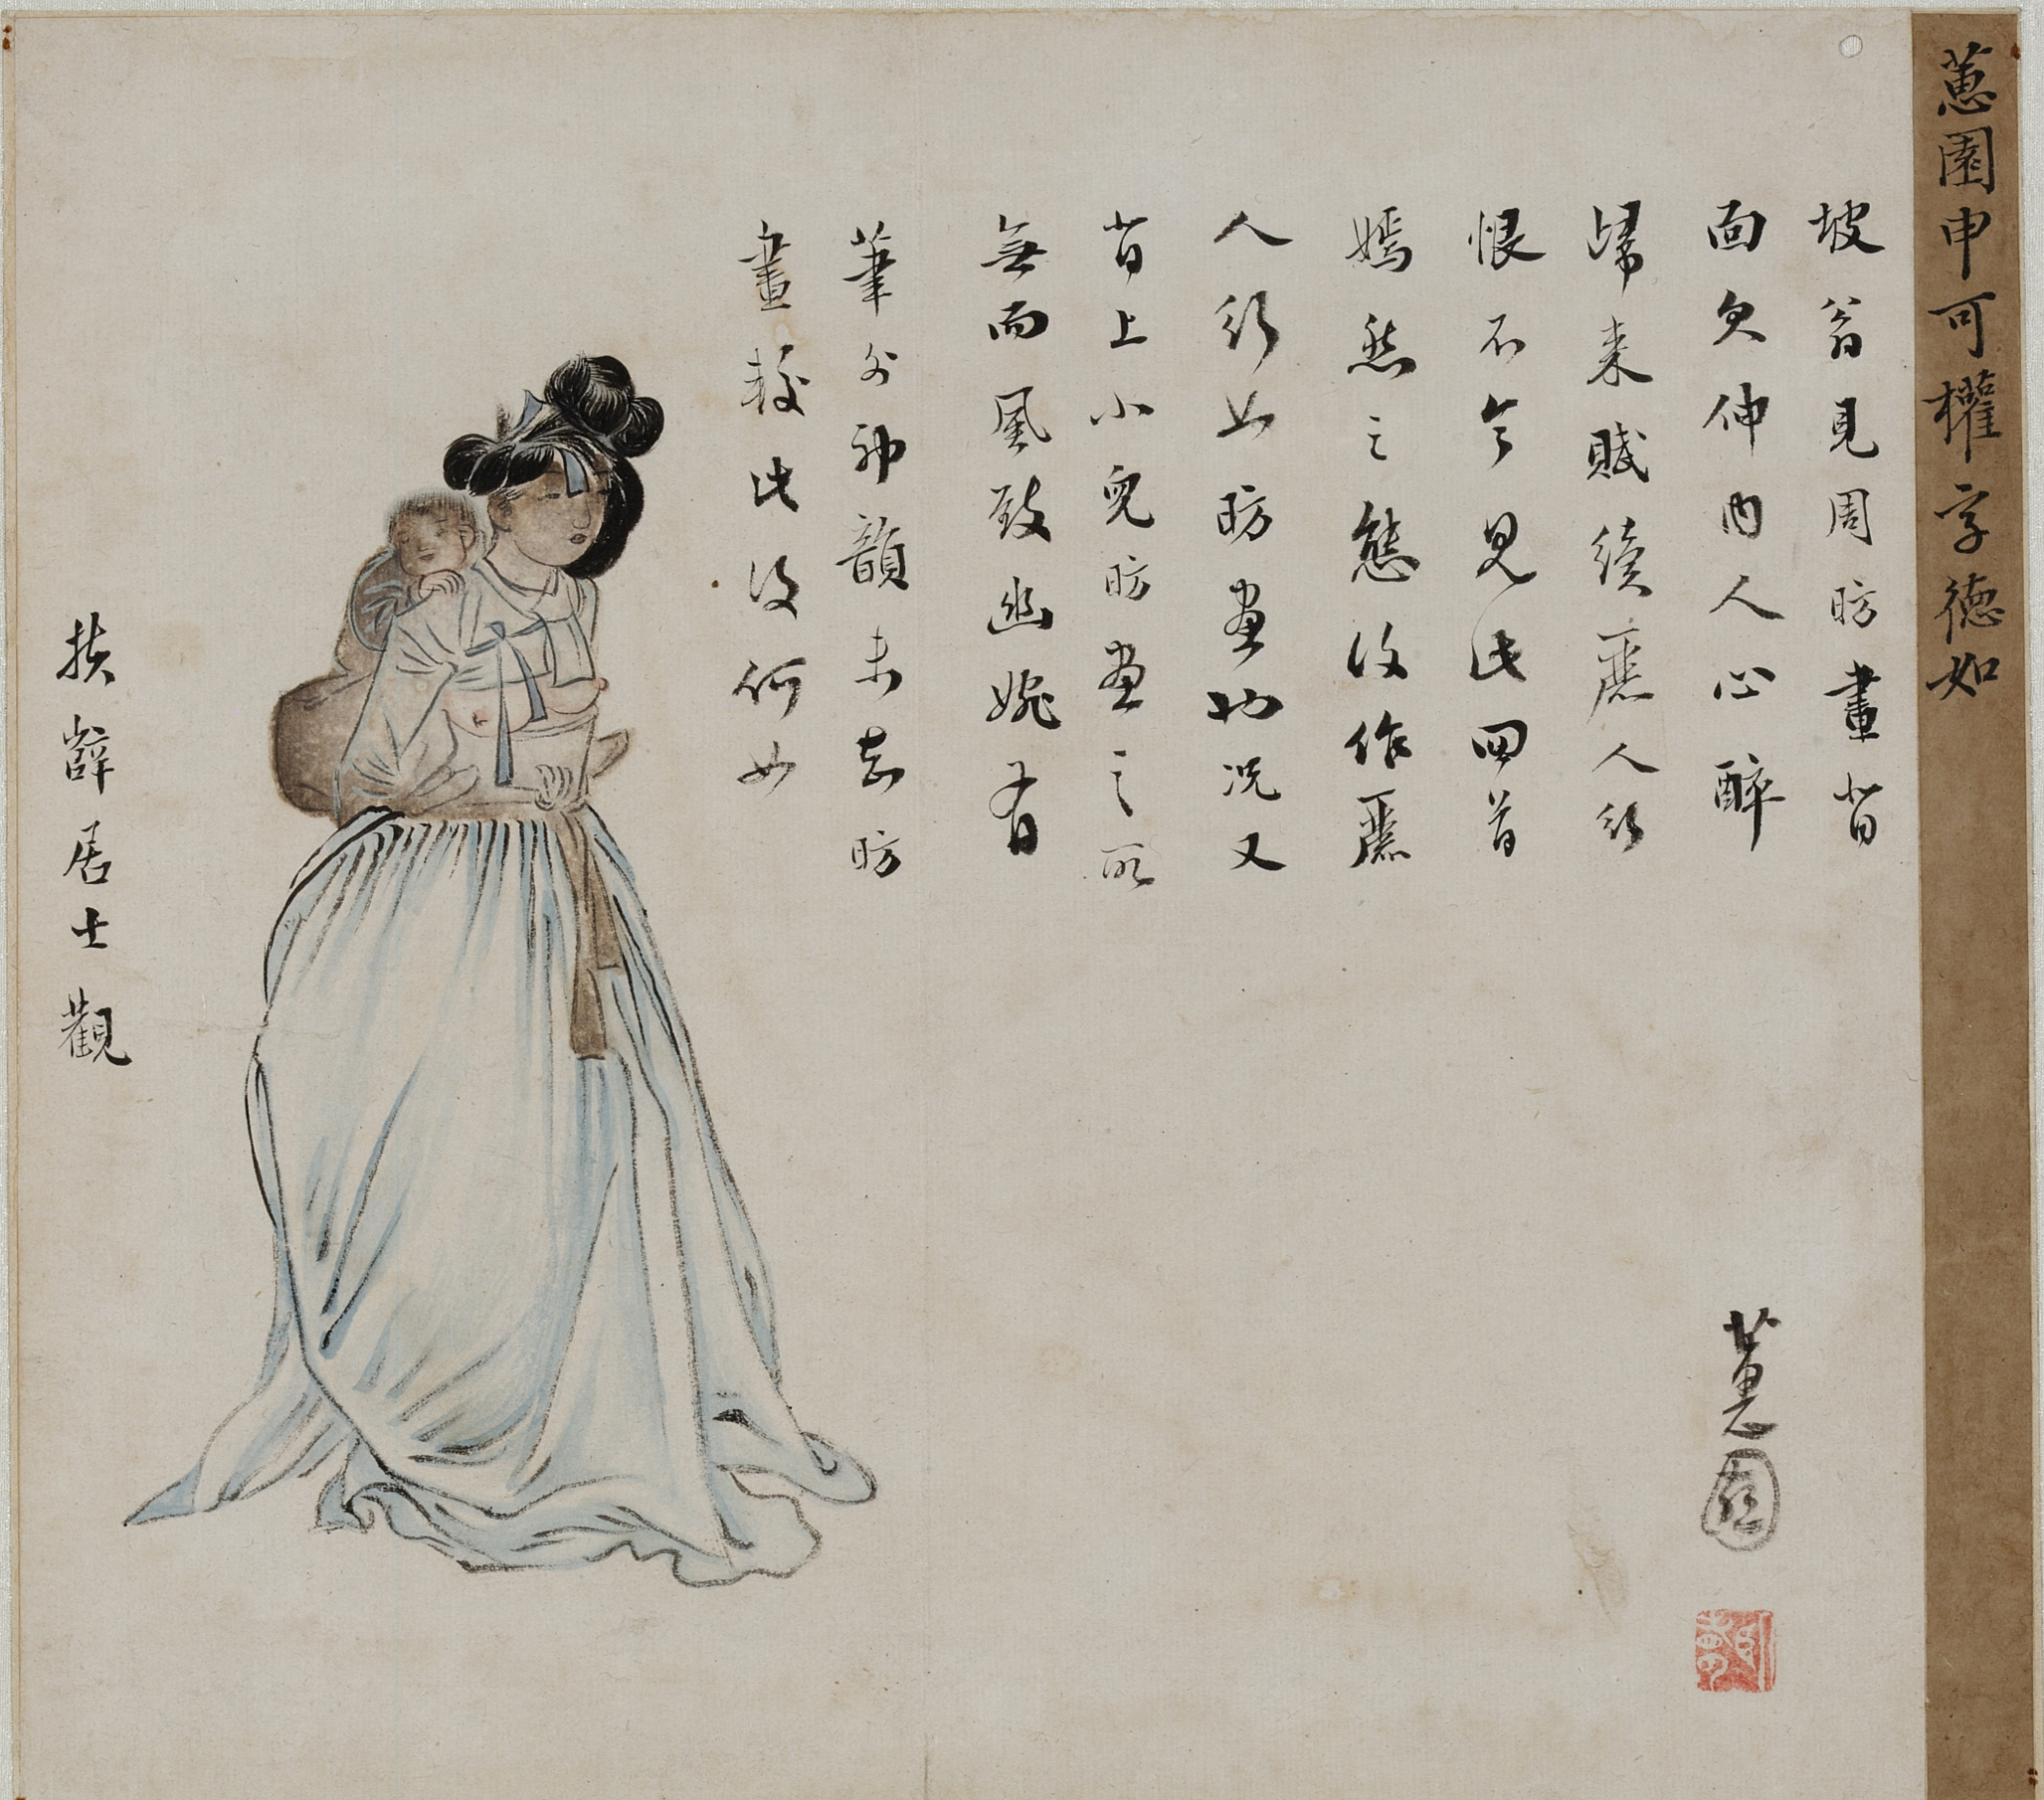 蕙園申可權字德如
坡翁見周昉畫背
面欠伸內人心醉
歸來賦續麗人行
恨不令見此回首
嫣然之態復作麗
人行以昉畫也況又
背上小兒昉畫之所
無而風致幽婉有
筆外神韻未知昉
畫較此復何如
扶薜居士觀
蕙園